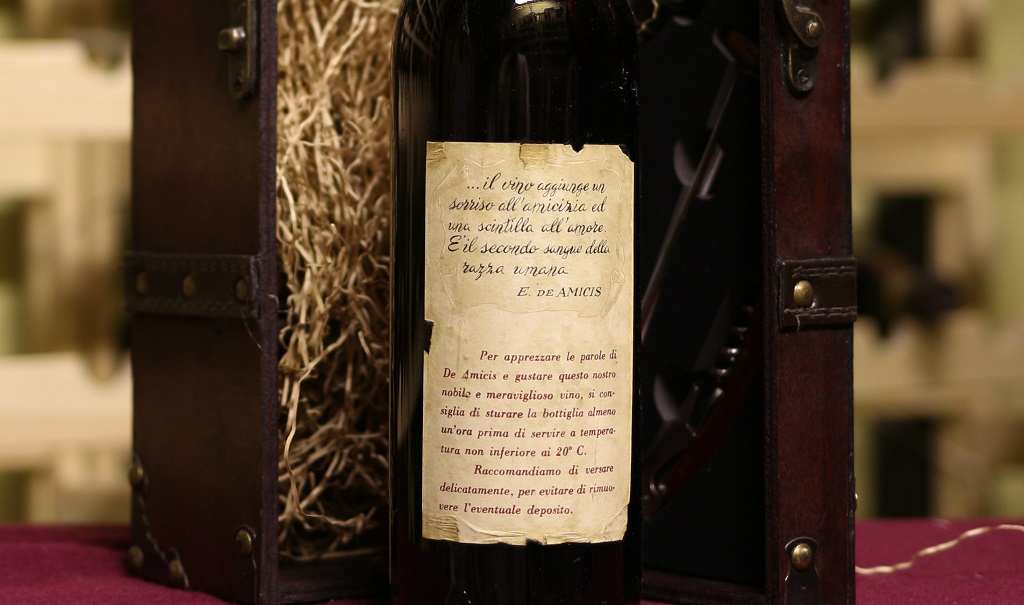 ...il vino aggiunge un
sorriso all'amicizia ed
una scintilla all'amore.
E' il secondo sangue della
razza umana
E. DE AMICIS
Per apprezzare le parole di
De Amicis e gustare questo nostro
nobile e meraviglioso vino, si con-
siglia di sturare la bottiglia almeno
un'ora prima di servire a tempera-
tura non inferiore ai 20° C.
Raccomandiamo di versare
delicatamente, per evitare di rimuo-
vere l'eventuale deposito.